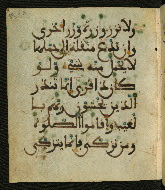 ولا تزر وازرة وزر اخرى
وان تدع مثقلة الى حملها
لا يحمل منه شيء ولو
كان ذا قربى انما تنذر
الذين يخشون ربهم با
لغيب واقاموا الصلوة
ومن تزكى فانما يتزكى